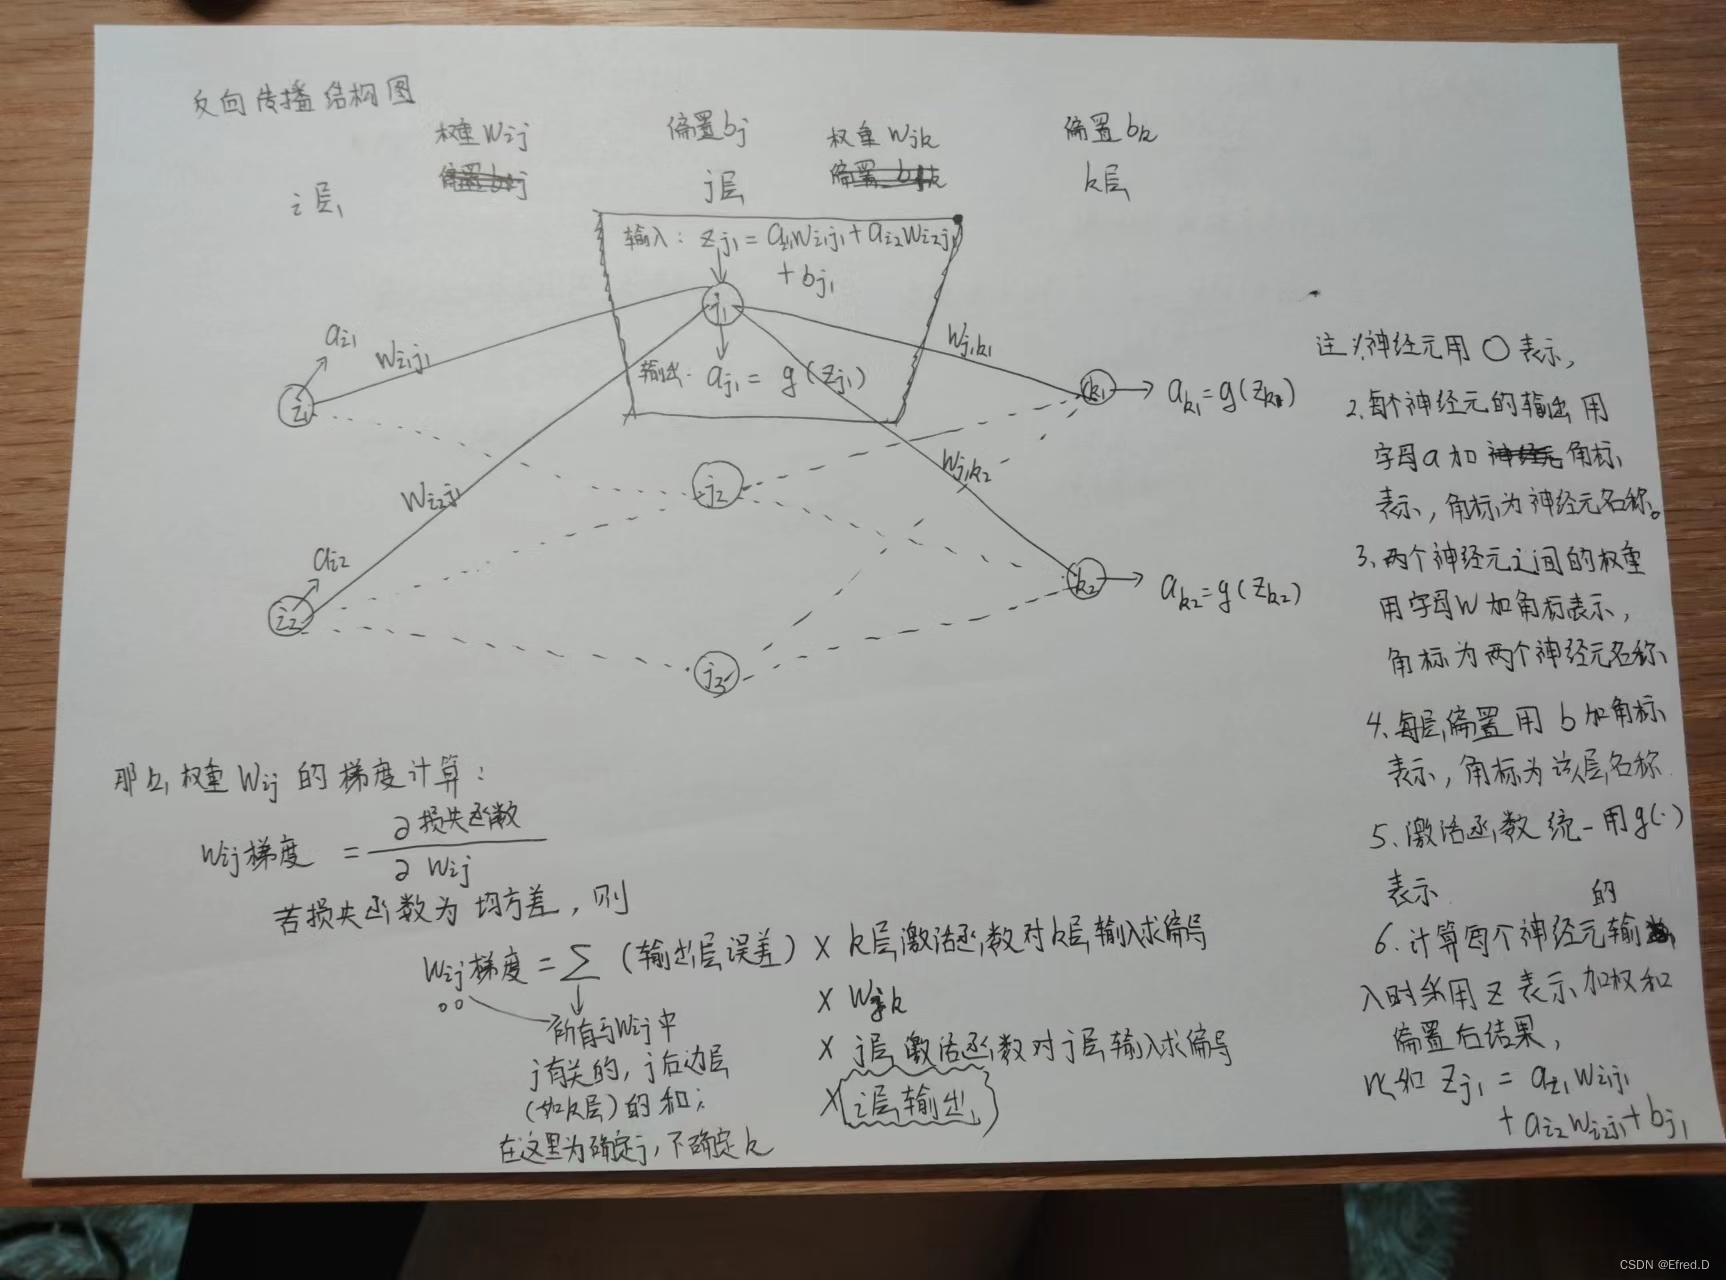 反向传播结构图
权重Wij
偏置bj
权重Wjk
偏置bk
i层
偏置bij
j层
偏置bjk
k层
输入: zj1 = ai1Wi1j1 + ai2Wi2j1
+ bj1
j1
输出: aj1 = g(zj1)
ai1
Wi1j1
i1
Wj1k1
k1
ak1 = g(zk1)
Wi2j1
j2
Wj1k2
ai2
i2
k2
ak2 = g(zk2)
j3
注1.神经元用○表示,
2.每个神经元的输出用
字母a加神经元角标
表示,角标为神经元名称。
3、两个神经元之间的权重
用字母W加角标表示,
角标为两个神经元名称
4、每层偏置用b加角标
表示,角标为该层名称.
5.激活函数统一用g(·)
表示.
6.计算每个神经元的输
入时采用z表示加权和
偏置后结果,
比如 zj1 = ai1Wi1j1
+ ai2Wi2j1 + bj1
那么权重Wij的梯度计算:
Wij梯度 = ∂损失函数 / ∂Wij
若损失函数为均方差,则
Wij梯度 = ∑ (输出层误差) × k层激活函数对k层输入求偏导
× Wjk
× j层激活函数对j层输入求偏导
× i层输出
所有与Wij中
j有关的,j右边层
(如k层)的和;
在这里为确定j,不确定k
CSDN @Efred.D